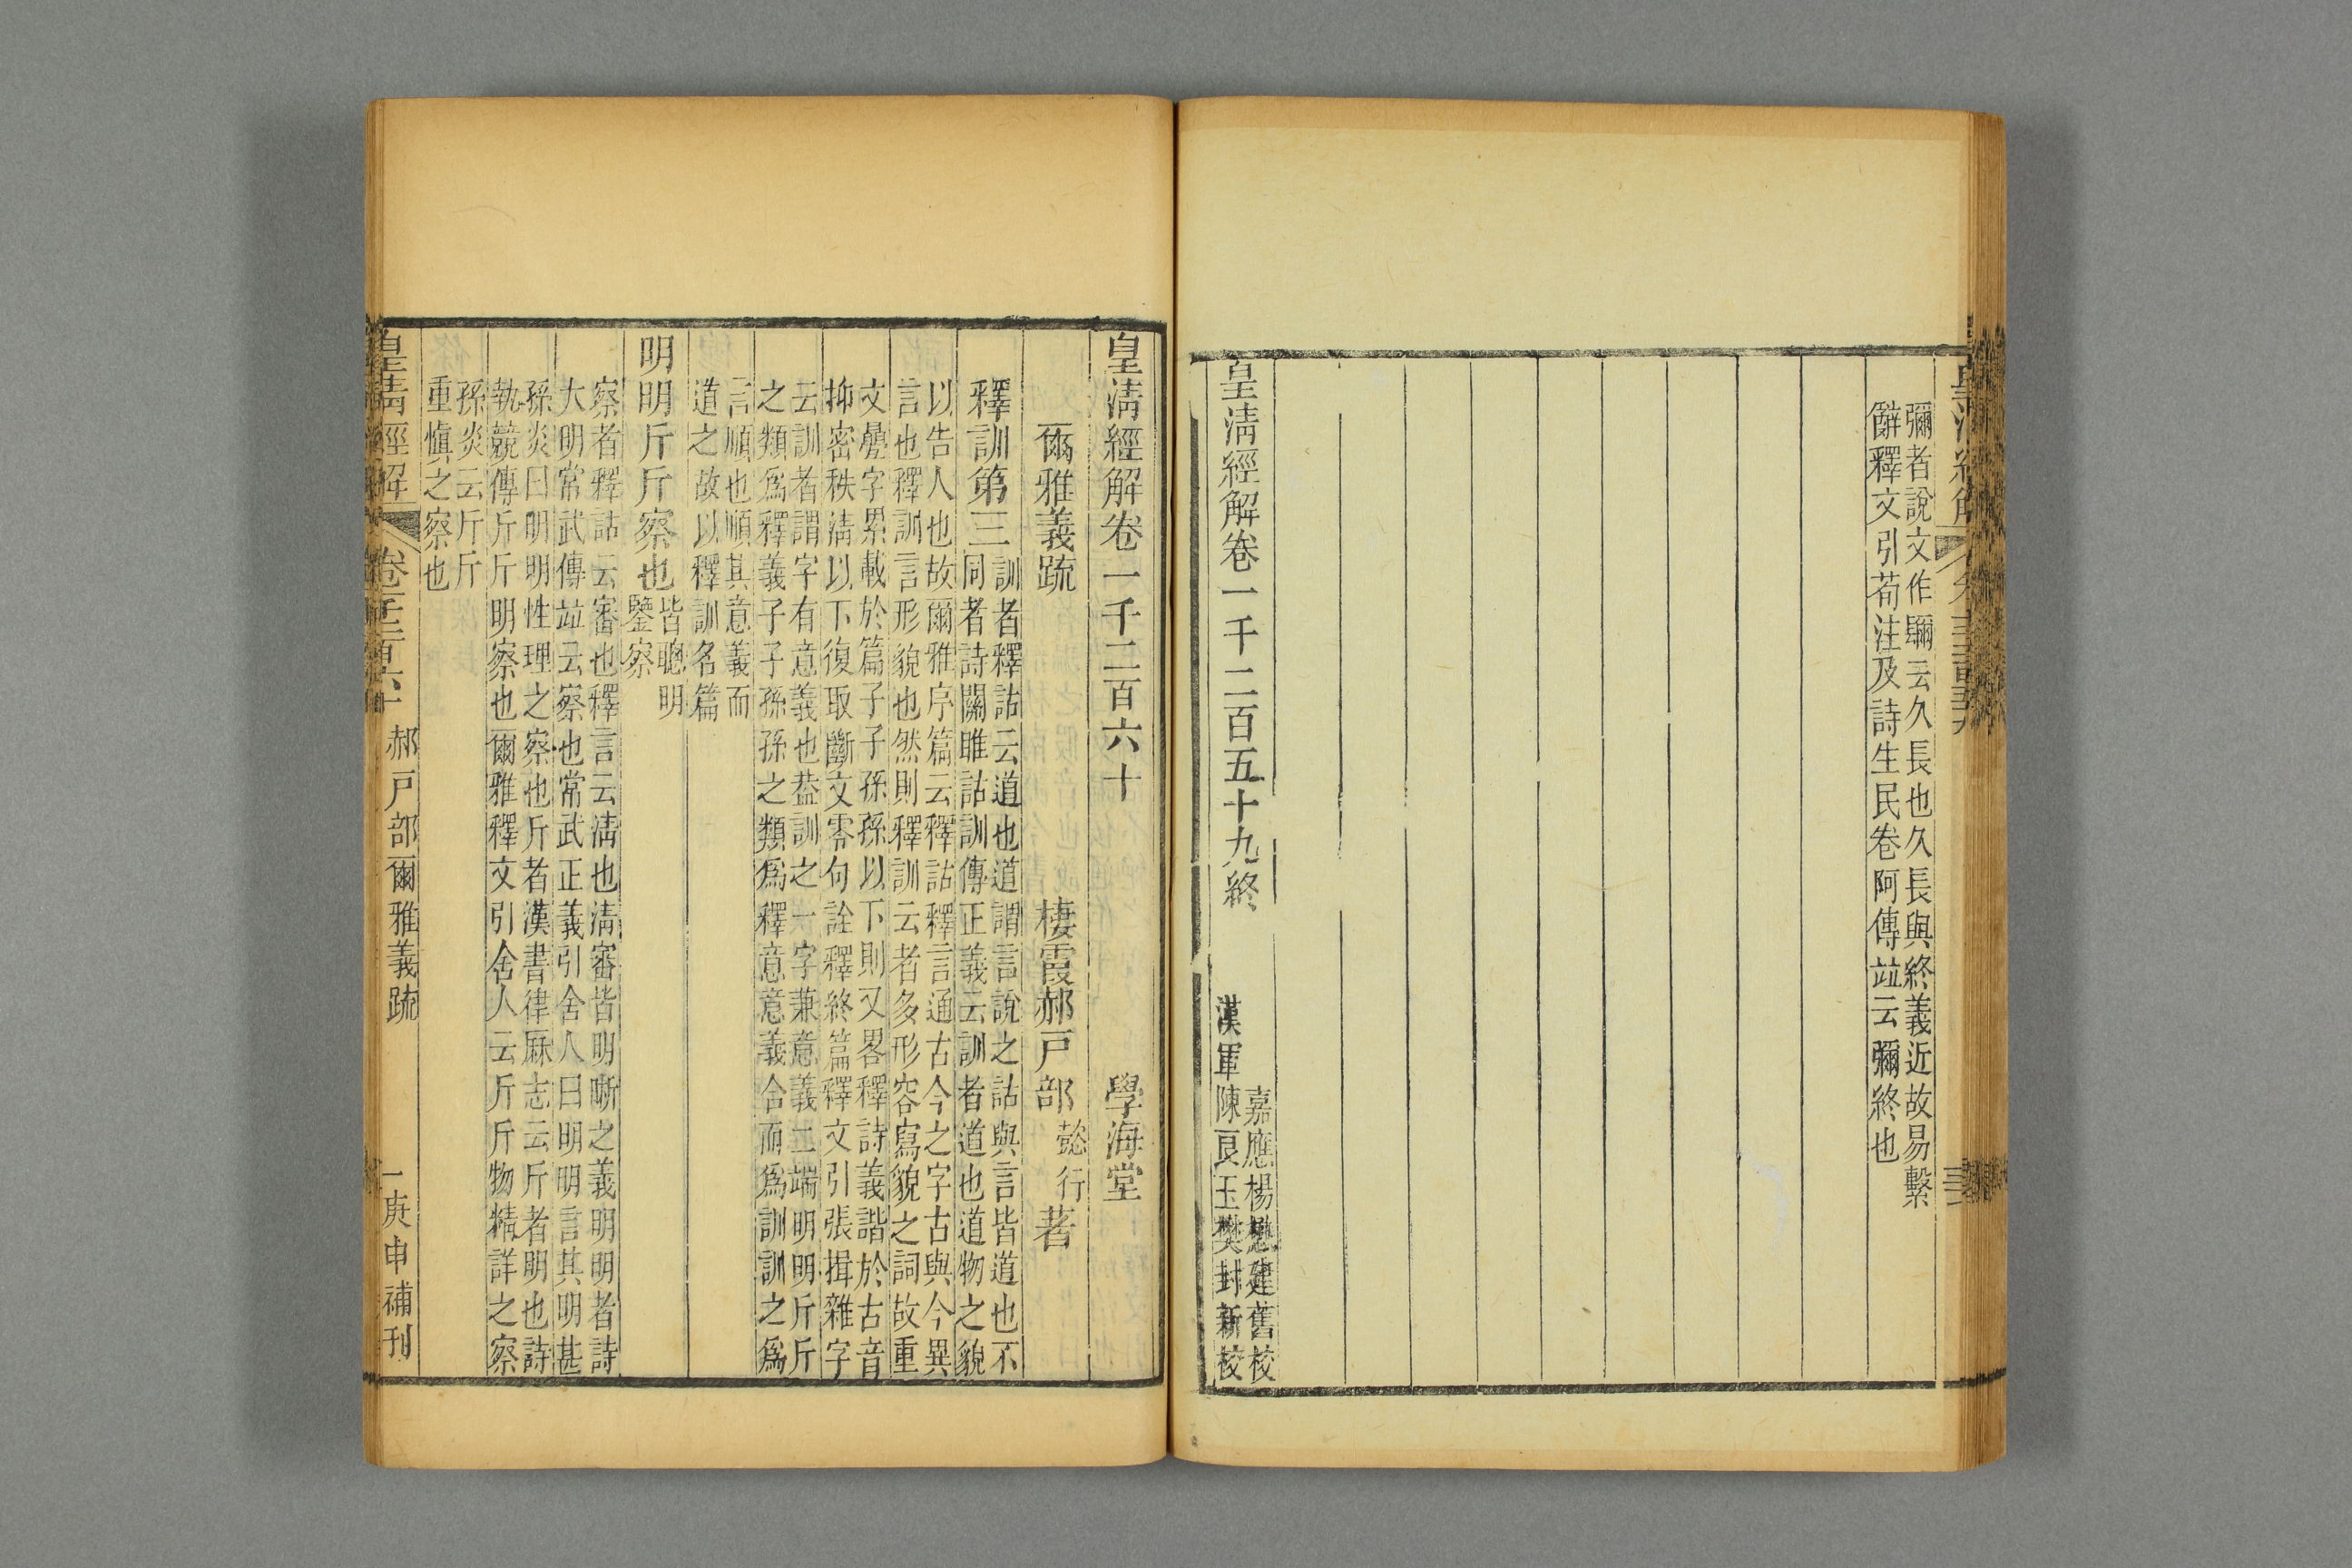 彌者說文作镾云久長也久長與終義近故易繫
辭釋文引荀注及詩生民卷阿傳竝云彌終也
皇淸經解卷一千二百五十九終
嘉應楊懋建舊校
漢軍陳良玉樊封新校
皇淸經解卷一千二百六十
學海堂
爾雅義疏
棲霞郝戸部懿行著
釋訓第三
訓者釋詁云道也道謂言說之詁與言皆道也不
同者詩關雎詁訓傳正義云訓者道也道物之貌
以告人也故爾雅序篇云釋詁釋言通古今之字古與今異
言也釋訓言形貌也然則釋訓云者多形容寫貌之詞故重
文疊字累載於篇子子孫孫以下則又畧釋詩義諧於古音
抑密秩淸以下復取斷文零句詮釋終篇釋文引張揖雜字
云訓者謂字有意義也葢訓之一字兼意義二端明明斤斤
之類爲釋義子子孫孫之類爲釋意意義合而爲訓訓之爲
言順也順其意義而
道之故以釋訓名篇
明明斤斤察也
皆聰明
鑒察
察者釋詁云審也釋言云淸也淸審皆明晰之義明明者詩
大明常武傳竝云察也常武正義引舍人曰明明言其明甚
孫炎曰明明性理之察也斤者漢書律厤志云斤者明也詩
執競傳斤斤明察也爾雅釋文引舍人云斤斤物精詳之察
孫炎云斤斤
重愼之察也
皇淸經解
卷一千二百六十
郝戸部爾雅義疏
一
庚申補刊